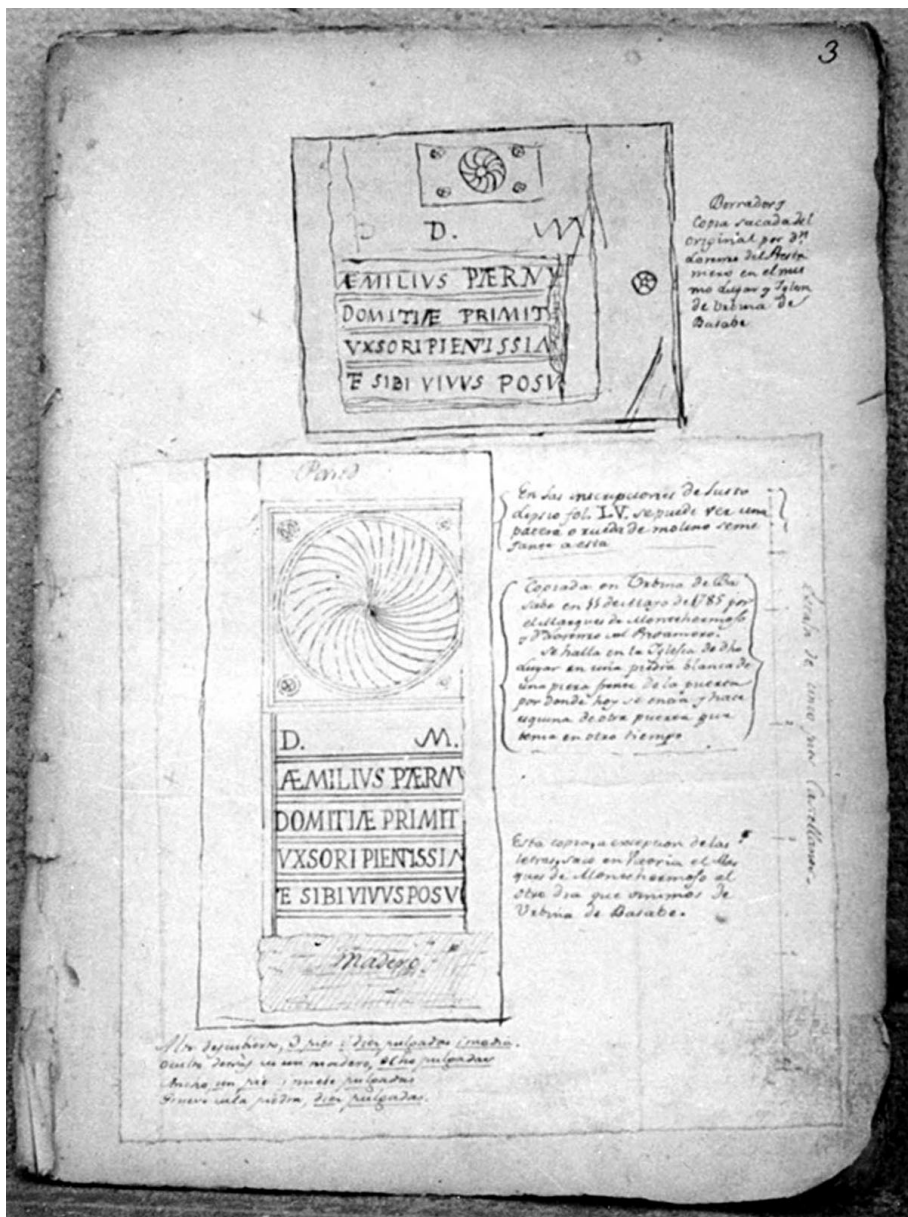 3
D. M
ÆMILIVS PÆRNV
DOMITIÆ PRIMIT
VXSORI PIENTISSIM
TE SIBI VIVVS POSV
Borrador y
copia sacada del
original por Dn
Lorenzo del Presta
mero en el mis
mo Lugar y Iglesia
de Urbina de
Basabe
Pared
D. M.
ÆMILIVS PÆRNV
DOMITIÆ PRIMIT
VXSORI PIENTISSIM
TE SIBI VIVVS POSVI
Madero
En las inscripciones de Justo
Lipsio fol. LV. se puede ver una
patera o rueda de molino seme
jante a esta
Copiada en Urbina de Ba
sabe en 11 de Mayo de 1785 por
el Marques de Montehermoso
y Dn Lorenzo del Prestamero.
Se halla en la Iglesia de dho
Lugar en una piedra blanca de
una pieza frente de la puerta
por donde hoy se entra y hace
esquina de otra puerta que
tenia en otro tiempo
Esta copia, a excepcion de las
letras, saco en Vitoria el Mar
ques de Montehermoso al
otro dia que venimos de
Urbina de Basabe.
Escala de cinco pies Castellanos.
Alto descubierto, 3 pies i diez pulgadas i media.
Oculto detras de un madero, ocho pulgadas
Ancho un pie i nueve pulgadas
Grueso de la piedra, diez pulgadas.